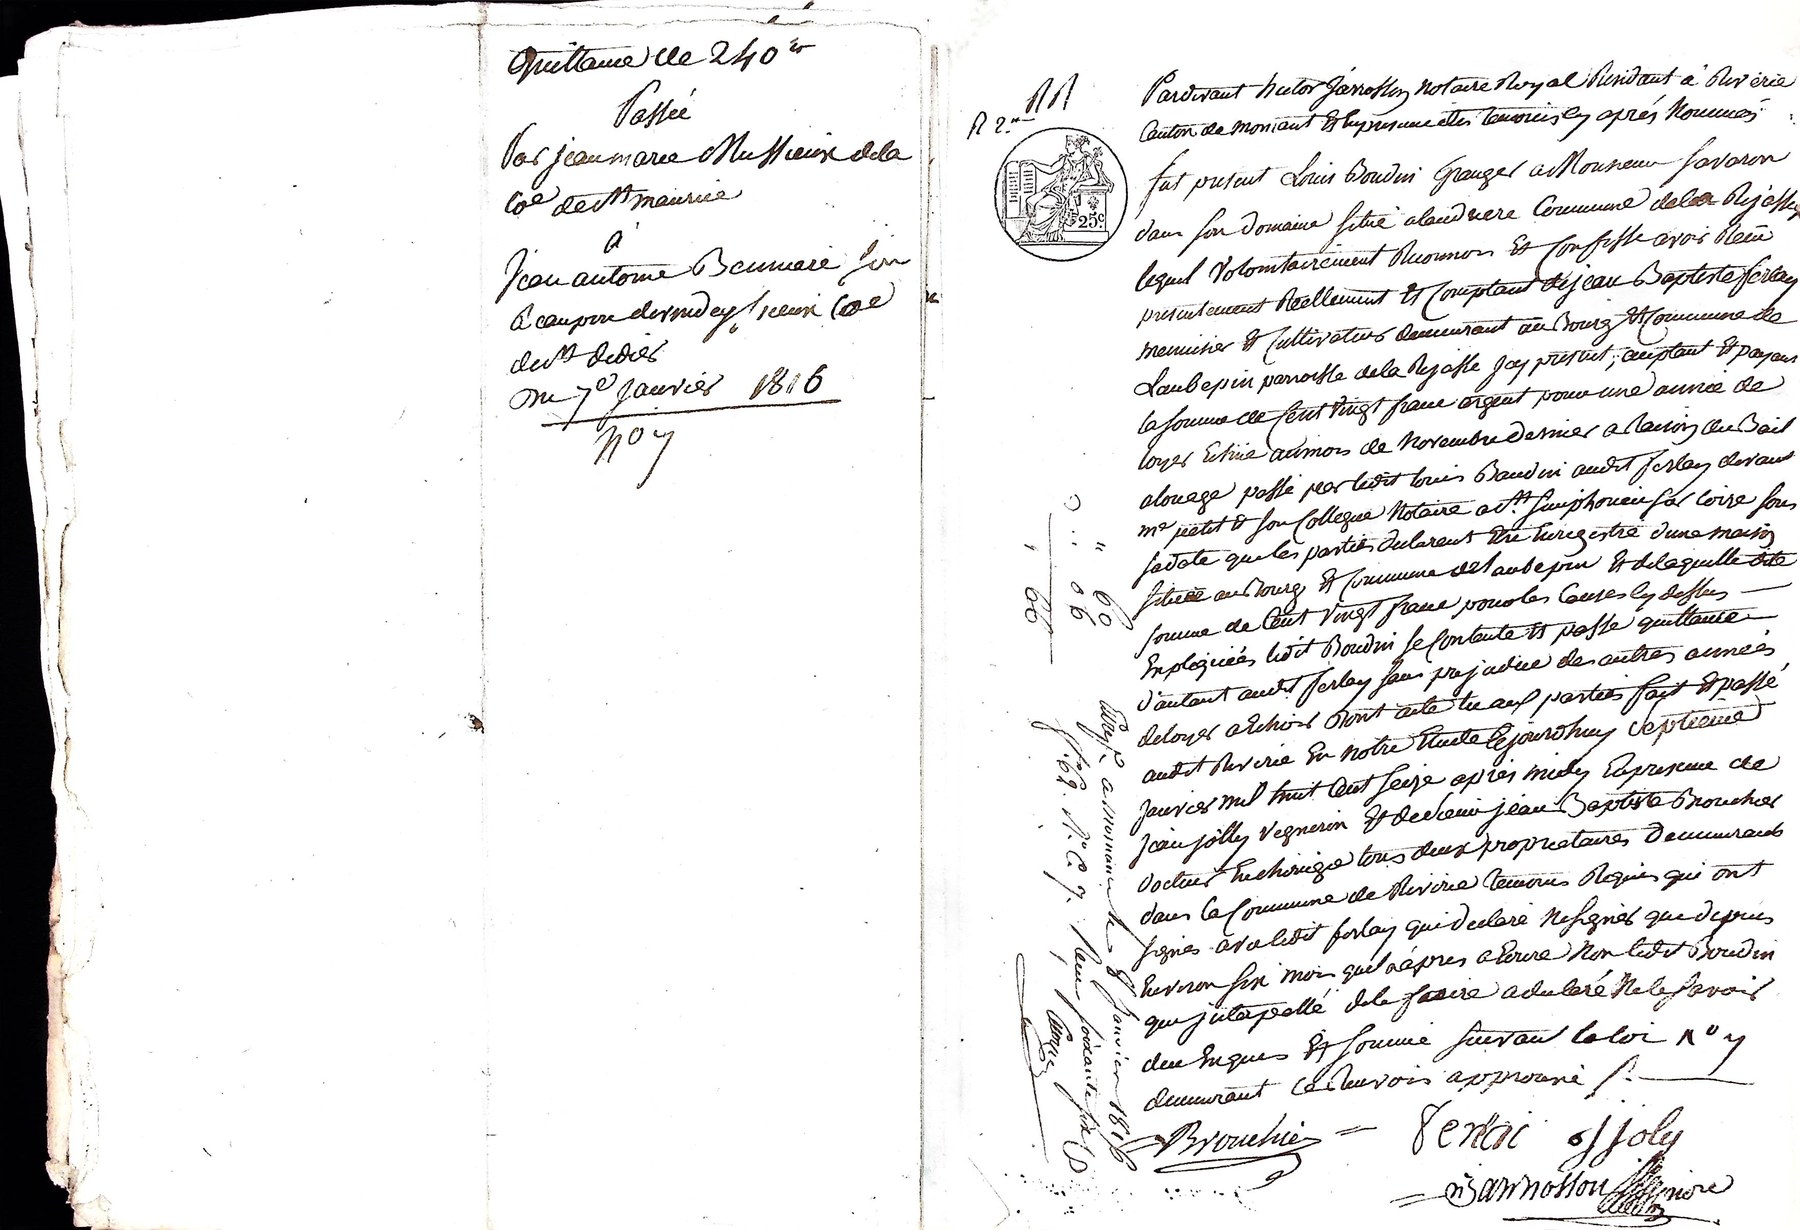 Quittance de 240 fr
Passée
Par jean marie Mussieux de la
Coe de St maurice
à
Jean antoine
de St didier
Du 7e Janvier 1816
No 7
RR
R 2.
25c
Pardevant hector Jarrosson Notaire Royal Résidant à Riverie
Canton de mornant Et En presence des temoins Cy après Nommés
fut présent Louis Boudin Granger a Monsieur Savaron
dans son Domaine situé Commune de la Rajasse
lequel Volontairement Reconnois Et Confesse avoir Recu
presentement Reellement Et Comptant de jean Baptiste ferlay
menuisier Et Cultivateur demeurant au Bourg Et Commune de
Laubepin parroisse de la Rajasse Icy présent, acceptant Et payant
la somme de Cent Vingt franc argent pour une année de
loyer Echue au mois de Novembre Dernier a Raison du Bail
alouage passé par ledit louis Baudin audit ferlay devant
me petit Et son Collegue Notaire a St Simphorien sur Coire sous
sa date que les parties declarent Etre Enregistré d'une maison
située au Bourg Et Commune de Laubepin Et de laquelle dite
somme de Cent Vingt franc pour les Causes Cy dessus
Expliquées ledit Boudin se Contente Et passe quittance
d'autant audit ferlay sans prejudice des autres années
de loyer a Echoir Dont acte lu aux parties fait Et passé
audit Riverie En notre Etude Cejourdhuy septieme
Janvier mil huit Cent seize après midy En presence de
Jean jolly Vigneron Et de sieur jean Baptiste Brouchier
docteur En chirurgie tous deux proprietaires Demeurants
dans la Commune de Riverie temoins Requis qui ont
signés avec ledit ferlay qui declaré Ne signer que depuis
Environ six mois a Ecrire Non ledit Boudin
qui interpellé de le faire a declaré Ne le savoir
de ce Enquis Et sommé suivant la loi No 7
demeurant le Renvoi approuvé
Brouchier ferlai jj joly
Jarrosson
" 60
06
" 66
Enregé a mornant le 8 janvier 1816
fo 69. Ro C. 7. Recu soixante six